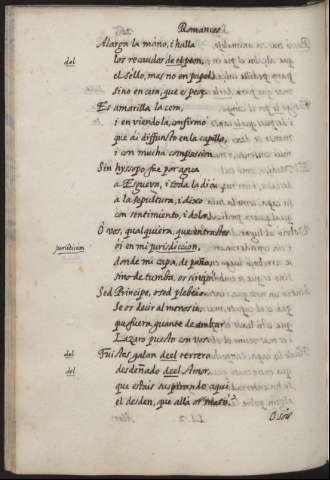 Romances
Alargò la mano, i halla
del
los recaudos de el pom,
el sello, mas no en papel
sino en cera, que es peor.
Es amarilla la cera,
i en viendola, confirmò
que ai diffunto en la capilla,
i con mucha
Sin hyssopo fue por agua
a Esgueva, i toda la dio
a la sepultura, i dixo
con sentimiento, i dolor.
O vos, qualquiera, que entrastes
juridicion
oi en mi jurisdiccion,
donde mi capa, de paño,
sino de tumba, os sirviò
Sed Principe, o sed plebeio
se os decir al menos io,
que fuera guante de ambar
Lazaro puesto con vos.
del
Fuistes galan de el terrero
del
desdeñado de el Amor,
que estais suspirando aqui
el desden, que allà os matò?
O sois